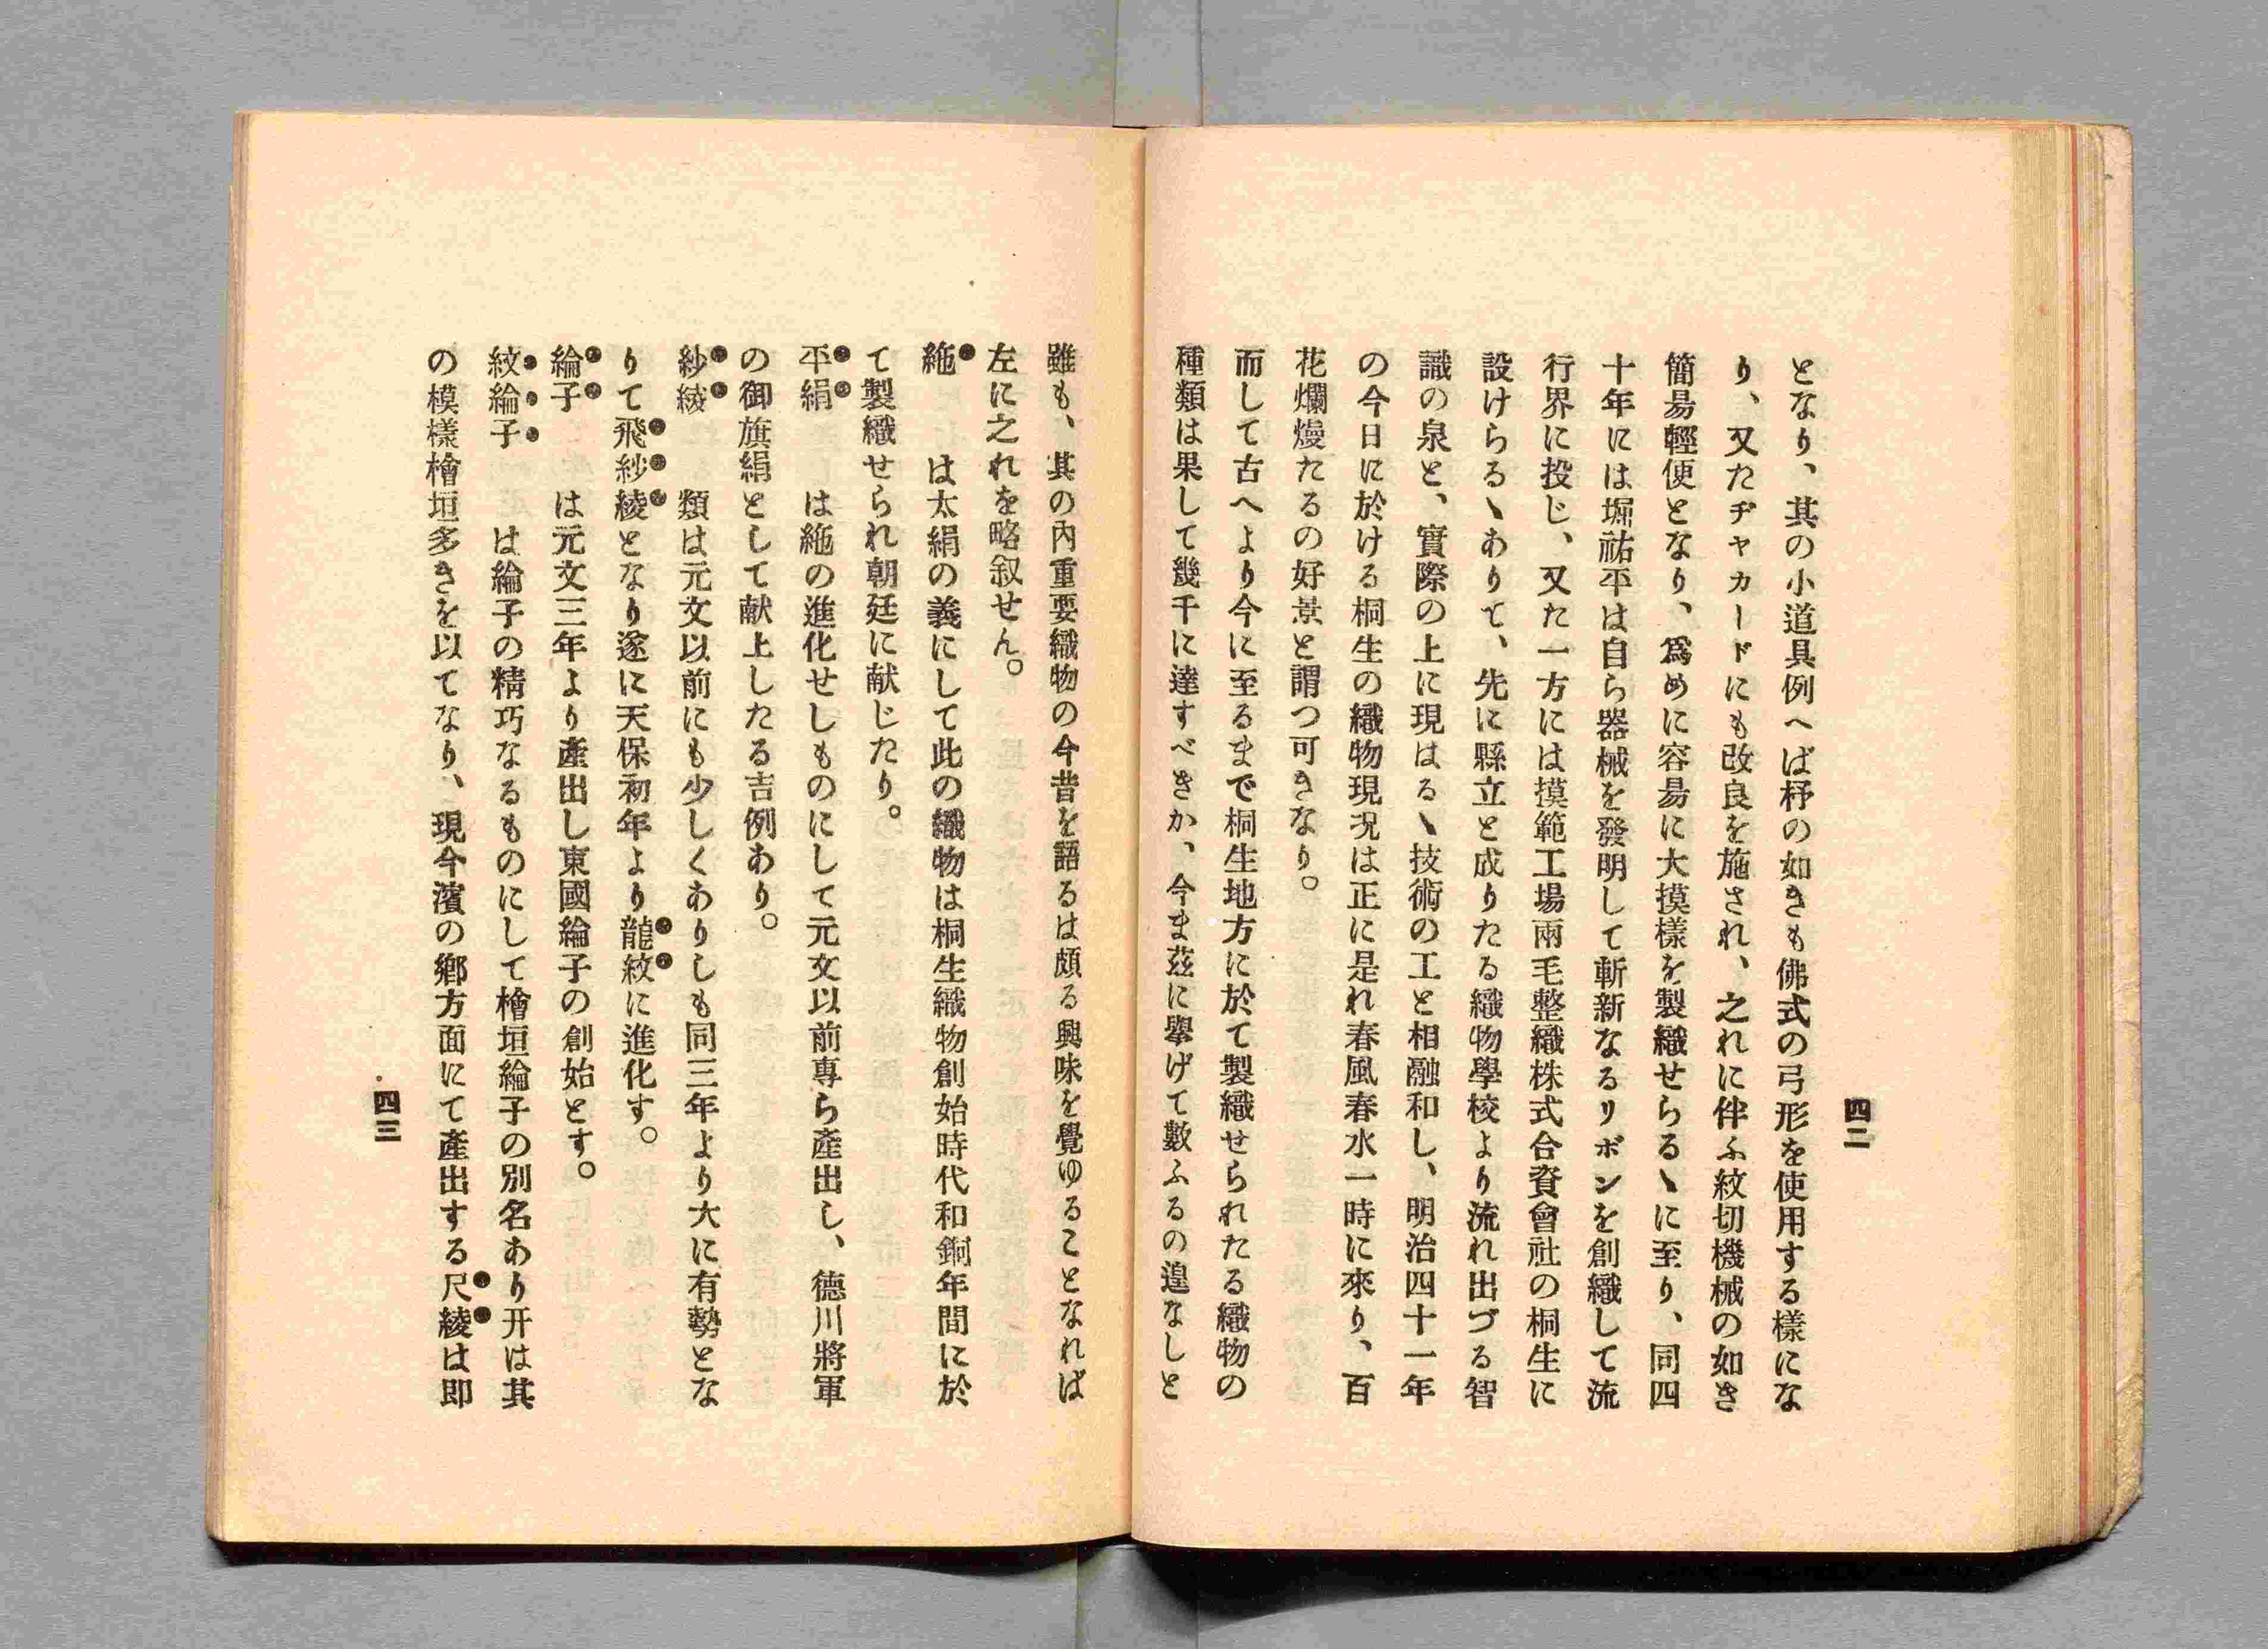 四二
となり、其の小道具例へば杼の如きも佛式の弓形を使用する樣にな
り、又たヂャカードにも改良を施され、之れに伴ふ紋切機械の如き
簡易輕便となり、爲めに容易に大摸樣を製織せらるヽに至り、同四
十年には堀祐平は自ら器械を發明して斬新なるリボンを創織して流
行界に投じ、又た一方には摸範工場兩毛整織株式合資會社の桐生に
設けらるヽありて、先に縣立と成りたる織物學校より流れ出づる智
識の泉と、實際の上に現はるヽ技術の工と相融和し、明治四十一年
の今日に於ける桐生の織物現況は正に是れ春風春水一時に來り、百
花爛熳たるの好景と謂つ可きなり。
而して古へより今に至るまで桐生地方に於て製織せられたる織物の
種類は果して幾千に達すべきか、今ま茲に擧げて數ふるの遑なしと
雖も、其の內重要織物の今昔を語るは頗る興味を覺ゆることなれば
左に之れを略叙せん。
絁　は太絹の義にして此の織物は桐生織物創始時代和銅年間に於
て製織せられ朝廷に献じたり。
平絹　は絁の進化せしものにして元文以前専ら產出し、德川將軍
の御旗絹として献上したる吉例あり。
紗綾　類は元文以前にも少しくありしも同三年より大に有勢とな
りて飛紗綾となり遂に天保初年より龍紋に進化す。
綸子　は元文三年より產出し東國綸子の創始とす。
紋綸子　は綸子の精巧なるものにして檜垣綸子の別名あり开は其
の模樣檜垣多きを以てなり、現今濱の鄕方面にて產出する尺綾は即
四三